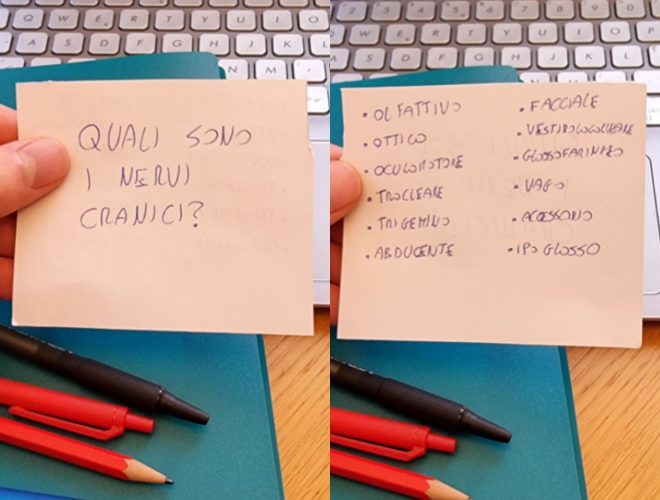 QUALI SONO
I NERVI
CRANICI?
• OLFATTIVO
• OTTICO
• OCULOMOTORE
• TROCLEARE
• TRIGEMINO
• ABDUCENTE
• FACCIALE
• VESTIBOLOCOCLEARE
• GLOSSOFARINGEO
• VAGO
• ACCESSORIO
• IPOGLOSSO